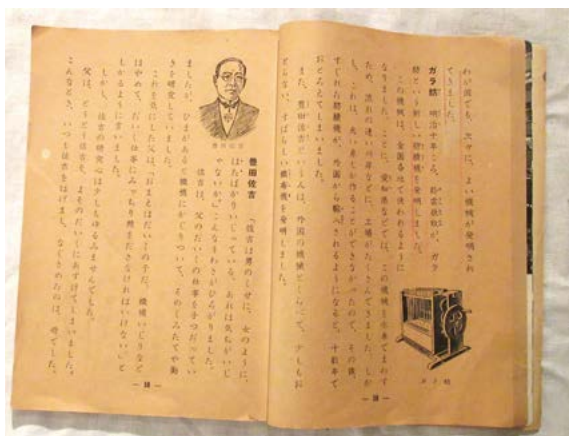 わが国でも、次々に、よい機械が発明され
てきました。
ガラ紡 明治十年ころ、臥雲辰致が、ガラ
紡という新しい紡績機を発明しました。
この機械は、全国各地で使われるように
なりました。ことに、愛知県などでは、この機械を水車でまわす
ため、流れの速い川岸などに、工場がたくさんできました。しか
も、これは、太い糸しか作ることができなかったので、その後、
すぐれた紡績機が、外国から輸入されるようになると、十数年で
おとろえてしまいました。
また、豊田佐吉という人は、外国の機械とくらべて、少しもお
とらない、すばらしい織布機を発明しました。
ガラ紡
豊田佐吉
豊田佐吉 「佐吉は男のくせに、女のように、
はたばかりいじっている。あれは気ちがいじ
ゃないか。」こんなうわさがひろがりました。
佐吉は、父のだいくの仕事を手つだってい
ましたが、ひまがあると機械にかじりついて、そのしくみや動
きを研究していました。
これを気にした父は、「おまえはだいくの子だ。機械いじりなど
はやめて、だいく仕事にみっちり精をださなければいけない。」と
しかるように言いました。
しかし、佐吉の研究心は少しもゆるみませんでした。
父は、とうとう佐吉を、よそのだいくにあずけてしまいました。
こんなとき、いつも佐吉をはげまし、なぐさめたのは、母でした。